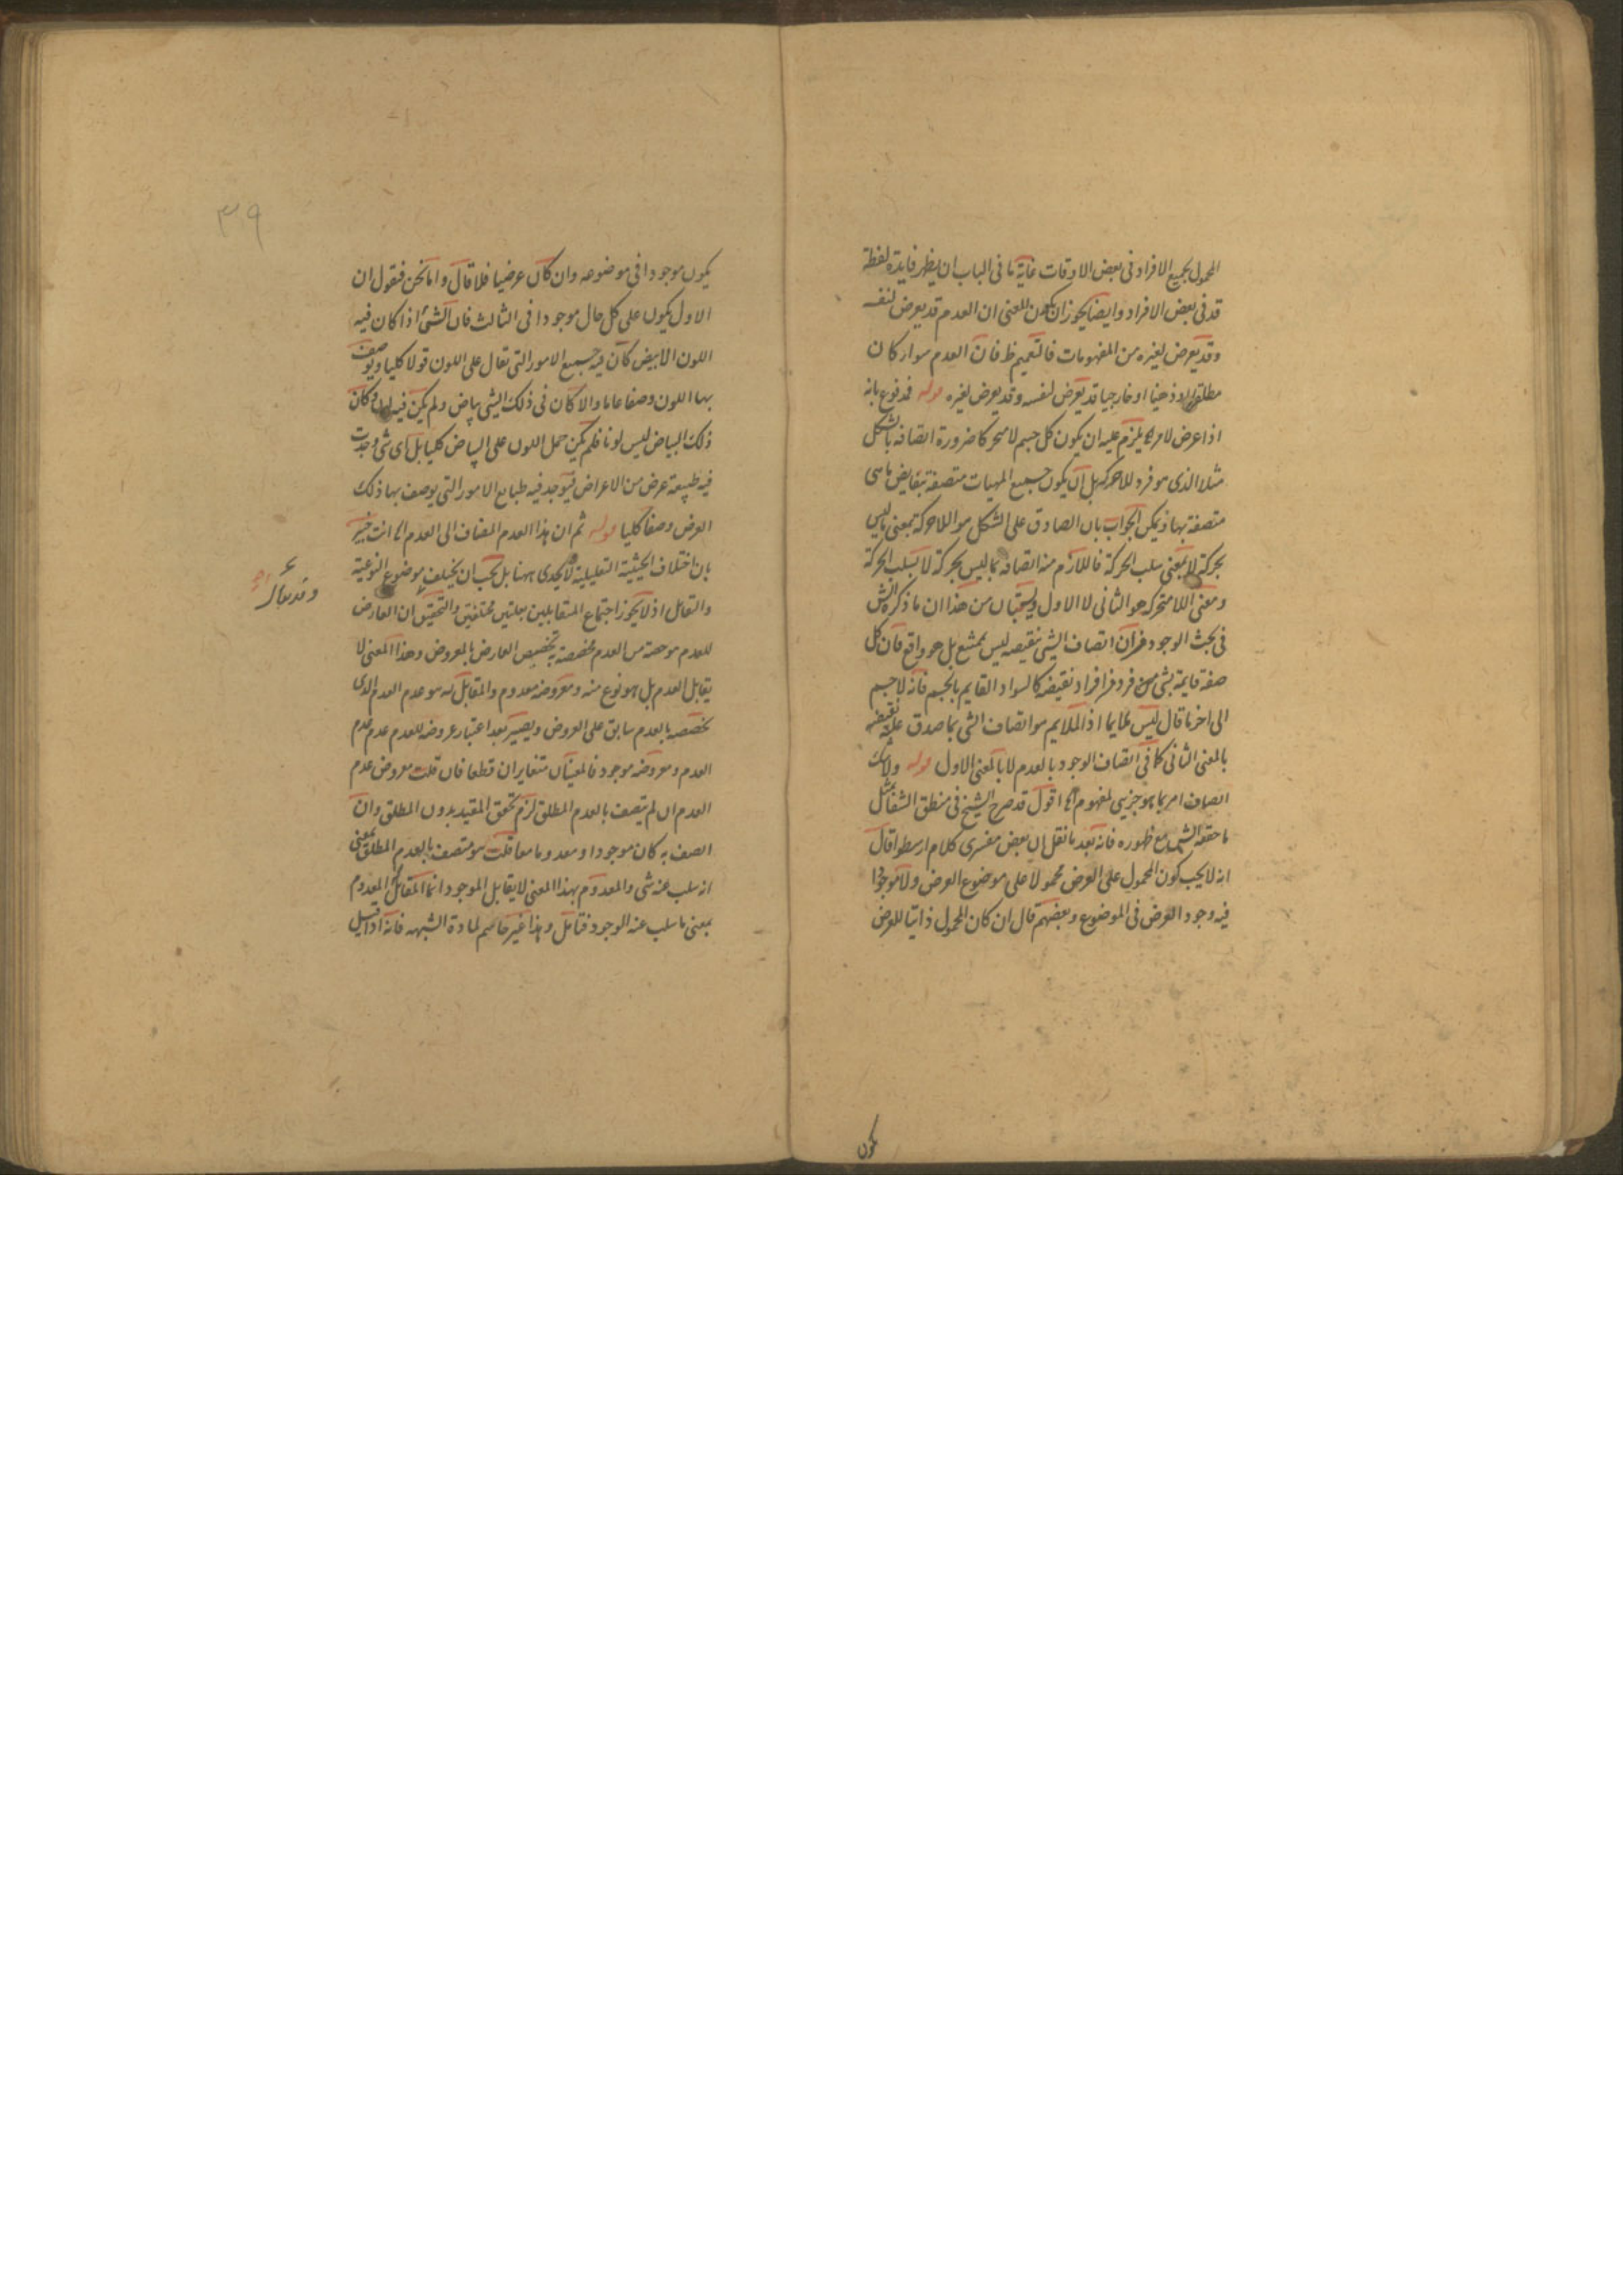 المحمول لجميع الافراد فى بعض الاوقات غاية ما فى الباب ان يظهر فايدة لفظة
قد فى بعض الافراد وايضا يجوز ان يكون المعنى ان العدم قد يعرض لنفسه
وقد يعرض لغيره من المفهومات فالتعميم ظ فان العدم سوار كان
مطلقا او ذهنيا او خارجيا قد يعرض لنفسه وقد يعرض لغيره قوله فمدفوع بانه
اذا عرض لامر اه يلزم عليه ان يكون كل جسم لامتحركا ضرورة اتصافه بالشكل
مثلا الذى هو فرد للاحركة بل ان يكون جميع المهيات متصفة بنقايض ما هى
متصفة بها ويمكن الجواب بان الصادق على الشكل هو اللاحركة بمعنى ما ليس
بحركة لا بمعنى سلب الحركة فاللازم منه اتصافه بما ليس بحركة لا بسلب الحركة
ومعنى اللامتحرك هو الثانى لا الاول ويستبان من هذا ان ما ذكره الش
فى بحث الوجود من ان اتصاف الشى بنقيضه ليس بممتنع بل هو واقع فان كل
صفة قايمة بشى من فرد من افراد نقيضه كالسواد القايم بالجسم فانه لاجسم
الى اخر ما قال ليس ملايما اذ الملايم هو اتصاف الشى بما صدق عليه نقيضه
بالمعنى الثانى كما فى اتصاف الوجود بالعدم لا بالمعنى الاول قوله ولا شك
اتصاف امر بما هو جزيى لمفهوم اه اقول قد صرح الشيخ فى منطق الشفا بمثل
ما حققه الش مع ظهوره فانه بعد ما نقل ان بعض مفسرى كلام ارسطو قال
انه لا يجب كون المحمول على العرض محمولا على موضوع العرض ولا موجودا
فيه وجود العرض فى الموضوع وبعضهم قال ان كان المحمول ذاتيا للعرض
يكون
٣٩
يكون موجودا فى موضوعه وان كان عرضيا فلا قال واما نحن فنقول ان
الاول يكون على كل حال موجودا فى الثالث فان الشئ اذا كان فيه
اللون الابيض كان فيه جميع الامور التى تقال على اللون قولا كليا ويوصف
بها اللون وصفا عاما والا كان فى ذلك الشى بياض ولم يكن فيه لون وكان
ذلك البياض ليس لونا فلم يكن حمل اللون على البياض كليا بل اى شى وجدت
فيه طبيعة عرض من الاعراض فيوجد فيه طبايع الامور التى يوصف بها ذلك
العرض وصفا كليا قوله ثم ان هذا العدم المضاف الى العدم اه انت خبير
بان اختلاف الحيثية التعليلية لا يجدى ههنا بل يجب ان يختلف موضوع النوعية
والتقابل اذ لا يجوز اجتماع المتقابلين بعلتين مختلفتين والتحقيق ان العارض
للعدم هو حصة من العدم مخصصة بتخصيص العارض بالمعروض وهذا المعنى لا
يقابل العدم بل هو نوع منه ومعروضه معدوم والمقابل له هو عدم العدم الذى
تخصصه بالعدم سابق على العروض ويصير بعد اعتبار عروضه للعدم عدم عدم
العدم ومعروضه موجود فالمعنيان متغايران قطعا فان قلت معروض عدم
العدم ان لم يتصف بالعدم المطلق لزم تحقق المقيد بدون المطلق وان
اتصف به كان موجودا ومعدوما معا قلت هو متصف بالعدم المطلق بمعنى
انه سلب عنه شى والمعدوم بهذا المعنى لا يقابل الموجود انما المقابل له المعدوم
بمعنى ما سلب عنه الوجود فتامل وهذا غير حاسم لمادة الشبهه فانه اذا قيل